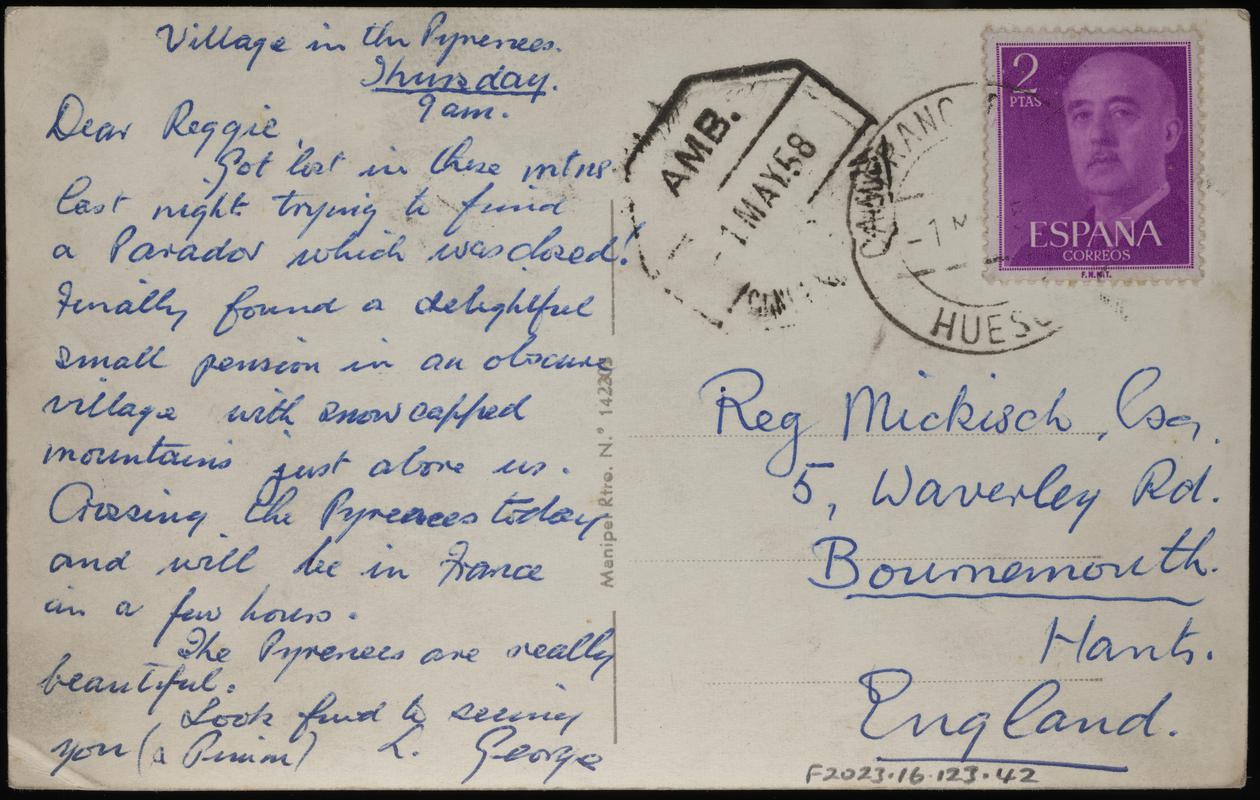 Village in the Pyrenees.
Thursday.
9 am.
Dear Reggie
Got lost in these mtns
last night trying to find
a Parador which was closed!
Finally found a delightful
small pension in an obscure
village with snow capped
mountains just above us.
Crossing the Pyrenees today
and will be in France
in a few hours.
The Pyrenees are really
beautiful.
Look fwd to seeing
you (a Pimm) L. George
Manipel Rtro. N.º
AMB.
-1 MAY.58
-1 M
HUESC
2
PTAS
ESPAÑA
CORREOS
F.N.M.T.
Reg Mickisch, Esq.
5, Waverley Rd.
Bournemouth.
Hants.
England.
F2023.16.123.42